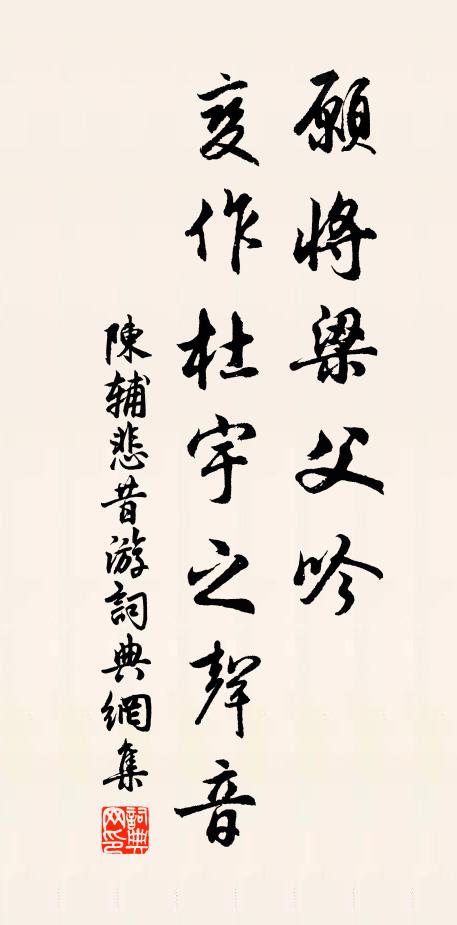 願將梁父吟
变作杜宇之聲音
陳辅悲昔游詞典網集
詞典网印